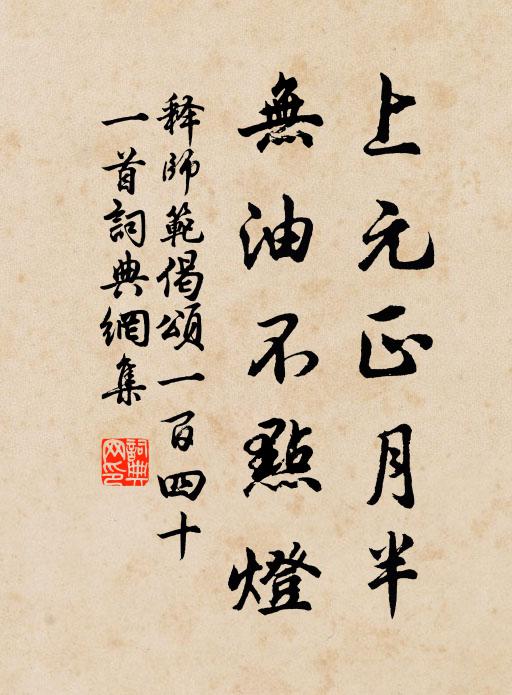 上元正月半
無油不點燈
释師範偈頌一百四十
一首詞典網集
詞典
网印